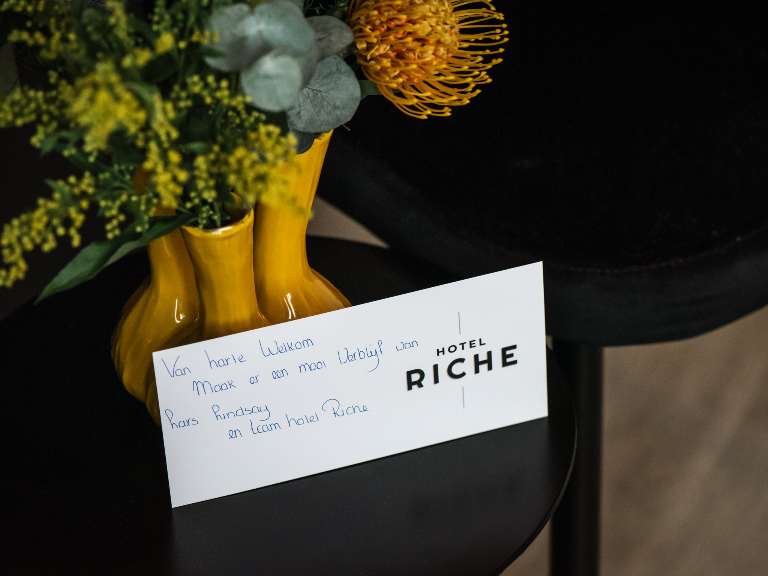 Van harte Welkom
Maak er een mooi Verblijf van
Lars Lindsay
en team hotel Riche
HOTEL
RICHE